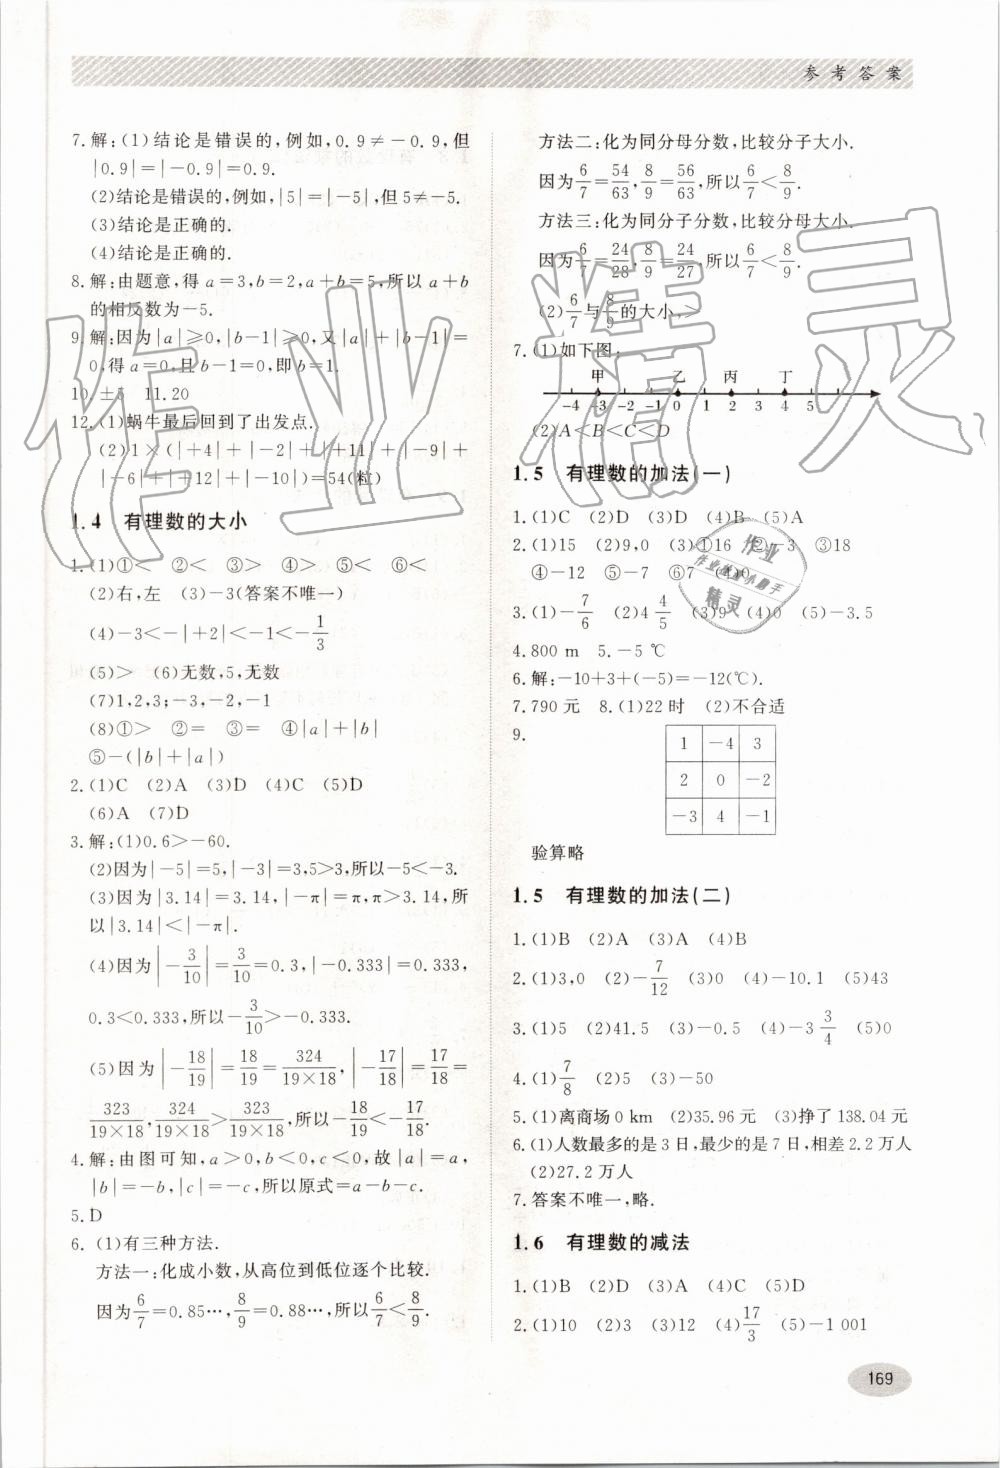 参考答案
7.解:(1)结论是错误的,例如,0.9≠-0.9,但
|0.9|=|-0.9|=0.9.
(2)结论是错误的,例如,|5|=|-5|,但5≠-5.
(3)结论是正确的.
(4)结论是正确的.
8.解:由题意,得a=3,b=2,a+b=5,所以a+b
的相反数为-5.
9.解:因为|a|≥0,|b-1|≥0,又|a|+|b-1|=
0,得a=0,且b-1=0,即b=1.
10.±5 11.20
12.(1)蜗牛最后回到了出发点.
(2)1×(|+4|+|-2|+|+11|+|-9|+
|-6|+|+12|+|-10|)=54(粒)
1.4 有理数的大小
1.(1)①< ②< ③> ④> ⑤< ⑥<
(2)右,左 (3)-3(答案不唯一)
(4)-3<-|+2|<-1<-1/3
(5)> (6)无数,5,无数
(7)1,2,3;-3,-2,-1
(8)①> ②= ③= ④|a|+|b|
⑤-(|b|+|a|)
2.(1)C (2)A (3)D (4)C (5)D
(6)A (7)D
3.解:(1)0.6>-60.
(2)因为|-5|=5,|-3|=3,5>3,所以-5<-3.
(3)因为|3.14|=3.14,|-π|=π,π>3.14,所
以|3.14|<|-π|.
(4)因为|-3/10|=3/10=0.3,|-0.333|=0.333,
0.3<0.333,所以-3/10>-0.333.
(5)因为|-18/19|=18/19=324/19×18,|-17/18|=17/18=
323/19×18,324/19×18>323/19×18,所以-18/19<-17/18.
4.解:由图可知,a>0,b<0,c<0,故|a|=a,
|b|=-b,|c|=-c,所以原式=a-b-c.
5.D
6.(1)有三种方法.
方法一:化成小数,从高位到低位逐个比较.
因为6/7=0.85…,8/9=0.88…,所以6/7<8/9.
方法二:化为同分母分数,比较分子大小.
因为6/7=54/63,8/9=56/63,所以6/7<8/9.
方法三:化为同分子分数,比较分母大小.
因为6/7=24/28,8/9=24/27,所以6/7<8/9.
(2)6/7与8/9的大小,>
7.(1)如下图:
甲 乙 丙 丁
-4 -3 -2 -1 0 1 2 3 4 5
(2)A<B<C<D
1.5 有理数的加法(一)
1.(1)C (2)D (3)D (4)B (5)A
2.(1)15 (2)9,0 (3)①16 ②-3 ③18
④-12 ⑤-7 ⑥7 ⑦0
3.(1)-7/6 (2)4 4/5 (3)9 (4)0 (5)-3.5
4.800 m 5.-5 ℃
6.解:-10+3+(-5)=-12(℃).
7.790元 8.(1)22时 (2)不合适
9.
1 -4 3
2 0 -2
-3 4 -1
验算略
1.5 有理数的加法(二)
1.(1)B (2)A (3)A (4)B
2.(1)3,0 (2)-7/12 (3)0 (4)-10.1 (5)43
3.(1)5 (2)41.5 (3)-0.5 (4)-3 3/4 (5)0
4.(1)7/8 (2)5 (3)-50
5.(1)离商场0 km (2)35.96元 (3)挣了138.04元
6.(1)人数最多的是3日,最少的是7日,相差2.2万人
(2)27.2万人
7.答案不唯一,略.
1.6 有理数的减法
1.(1)B (2)D (3)A (4)C (5)D
2.(1)10 (2)3 (3)12 (4)17/3 (5)-1 001
169
作业精灵
作业
精灵